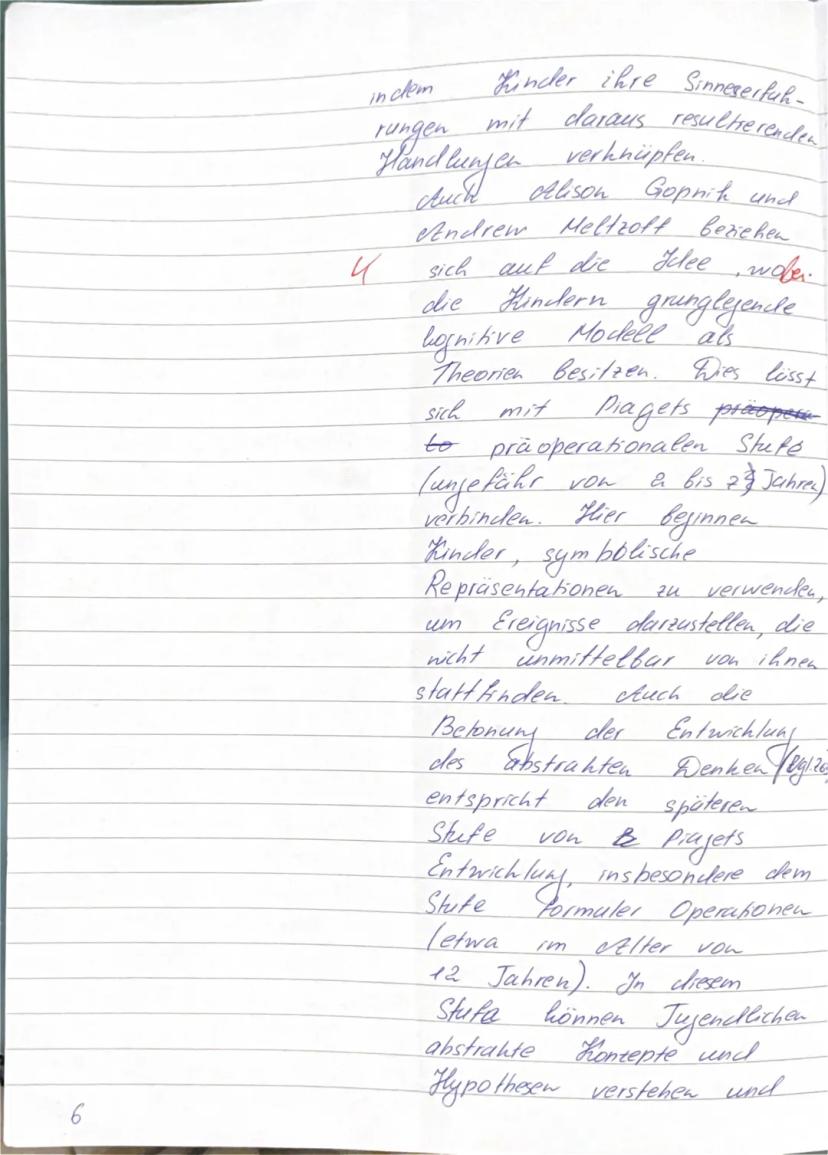 indem Kinder ihre Sinneserfah-
rungen mit daraus resultierenden
Handlungen verknüpfen.
Auch Alison Gopnik und
Andrew Meltzoff beziehen
4 sich auf die Idee, wobei
die Kindern grunglegende
kognitive Modell als
Theorien besitzen. Dies lässt
sich mit Piagets präopera
to präoperationalen Stufe
(ungefähr von 2 bis 7 Jahren)
verbinden. Hier beginnen
Kinder, symbolische
Repräsentationen zu verwenden,
um Ereignisse darzustellen, die
nicht unmittelbar von ihnen
stattfinden. Auch die
Betonung der Entwicklung
des abstrakten Denken (vgl. Z6
entspricht den späteren
Stufe von Piagets
Entwicklung, insbesondere dem
Stufe formaler Operationen
(etwa im Alter von
12 Jahren). In diesem
Stufa können Jugendlichen
abstrakte Konzepte und
Hypothesen verstehen und
6